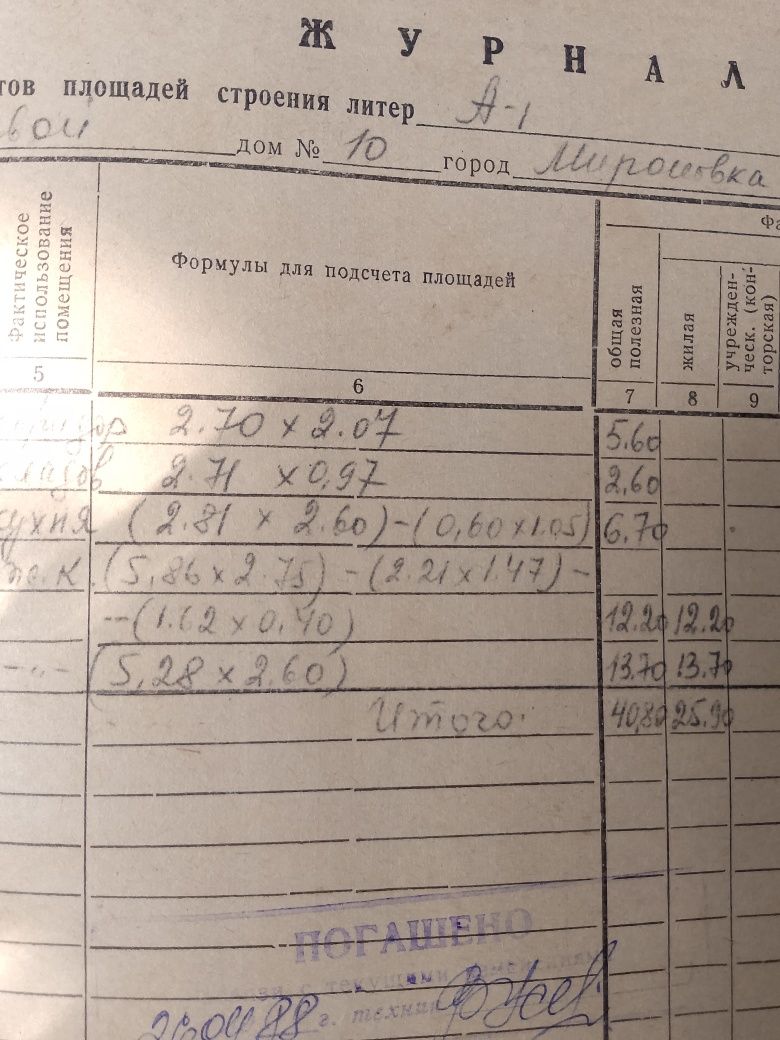 ЖУРНАЛ
тов площадей строения литер А-1
вой дом № 10 город Мироновка
Фактическое использование помещения
Формулы для подсчета площадей
Фа
общая полезная
жилая
учрежден-ческ. (кон-торская)
5 6 7 8 9
2.70 x 2.07 5.60
2.71 x 0,97 2,60
кухня (2.81 x 2.60)-(0,60x1.05) 6.70
(5,86 x 2.75) - (2.21x1.47) -
--(1.62 x 0,40) 12.20 12.20
-"- (5,28 x 2.60) 13.70 13.70
Итого: 40,80 25.90
ПОГАШЕНО
с текущими изменениями
260488 г. техник